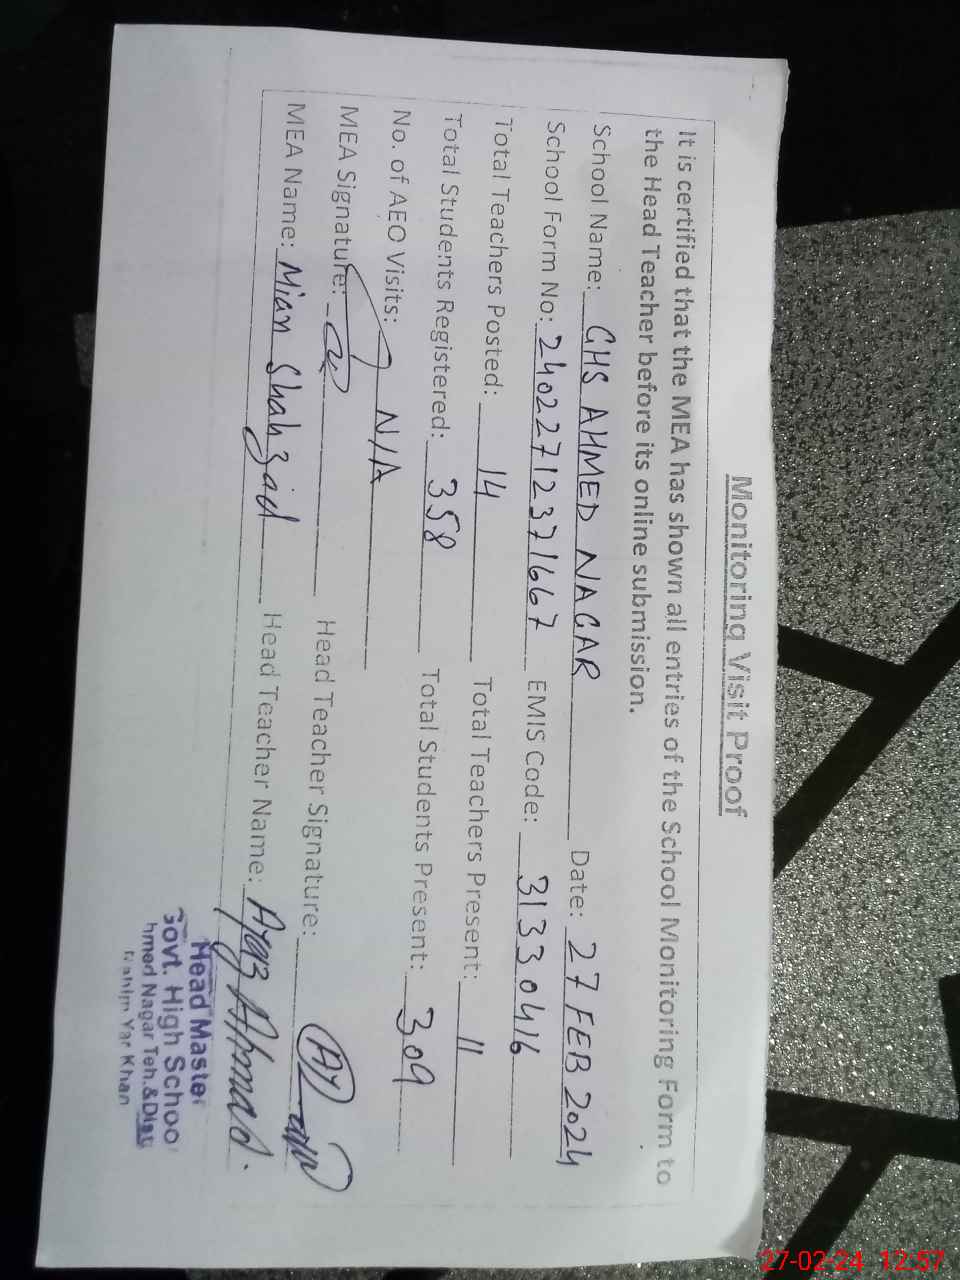 Monitoring Visit Proof
It is certified that the MEA has shown all entries of the School Monitoring Form to
the Head Teacher before its online submission.
School Name: GHS AHMED NAGAR Date: 27 FEB 2024
School Form No: 24022712371667 EMIS Code: 31330416
Total Teachers Posted: 14 Total Teachers Present: 11
Total Students Registered: 358 Total Students Present: 309
No. of AEO Visits: N/A
MEA Signature: Head Teacher Signature:
MEA Name: Mian Shahzaid Head Teacher Name: Ayaz Ahmad.
Head Master
Govt. High School
hmed Nagar Teh.&Dist
Rahim Yar Khan
27-02-24 12:57